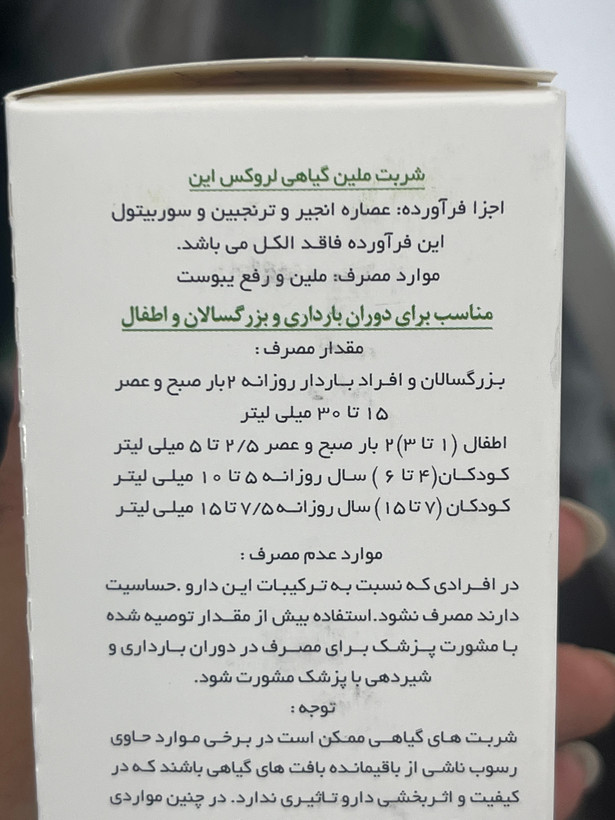 شربت ملین گیاهی لروکس این
اجزا فرآورده: عصاره انجیر و ترنجبین و سوربیتول
این فرآورده فاقد الکل می باشد.
موارد مصرف: ملین و رفع یبوست
مناسب برای دوران بارداری و بزرگسالان و اطفال
مقدار مصرف :
بزرگسالان و افراد باردار روزانه ۲بار صبح و عصر
۱۵ تا ۳۰ میلی لیتر
اطفال (۱ تا ۳) ۲ بار صبح و عصر ۲/۵ تا ۵ میلی لیتر
کودکان(۴ تا ۶ ) سال روزانه ۵ تا ۱۰ میلی لیتر
کودکان (۷ تا۱۵) سال روزانه ۷/۵ تا۱۵ میلی لیتر
موارد عدم مصرف :
در افرادی که نسبت به ترکیبات این دارو .حساسیت
دارند مصرف نشود.استفاده بیش از مقدار توصیه شده
با مشورت پزشک برای مصرف در دوران بارداری و
شیردهی با پزشک مشورت شود.
توجه :
شربت های گیاهی ممکن است در برخی موارد حاوی
رسوب ناشی از باقیمانده بافت های گیاهی باشند که در
کیفیت و اثربخشی دارو تاثیری ندارد. در چنین مواردی